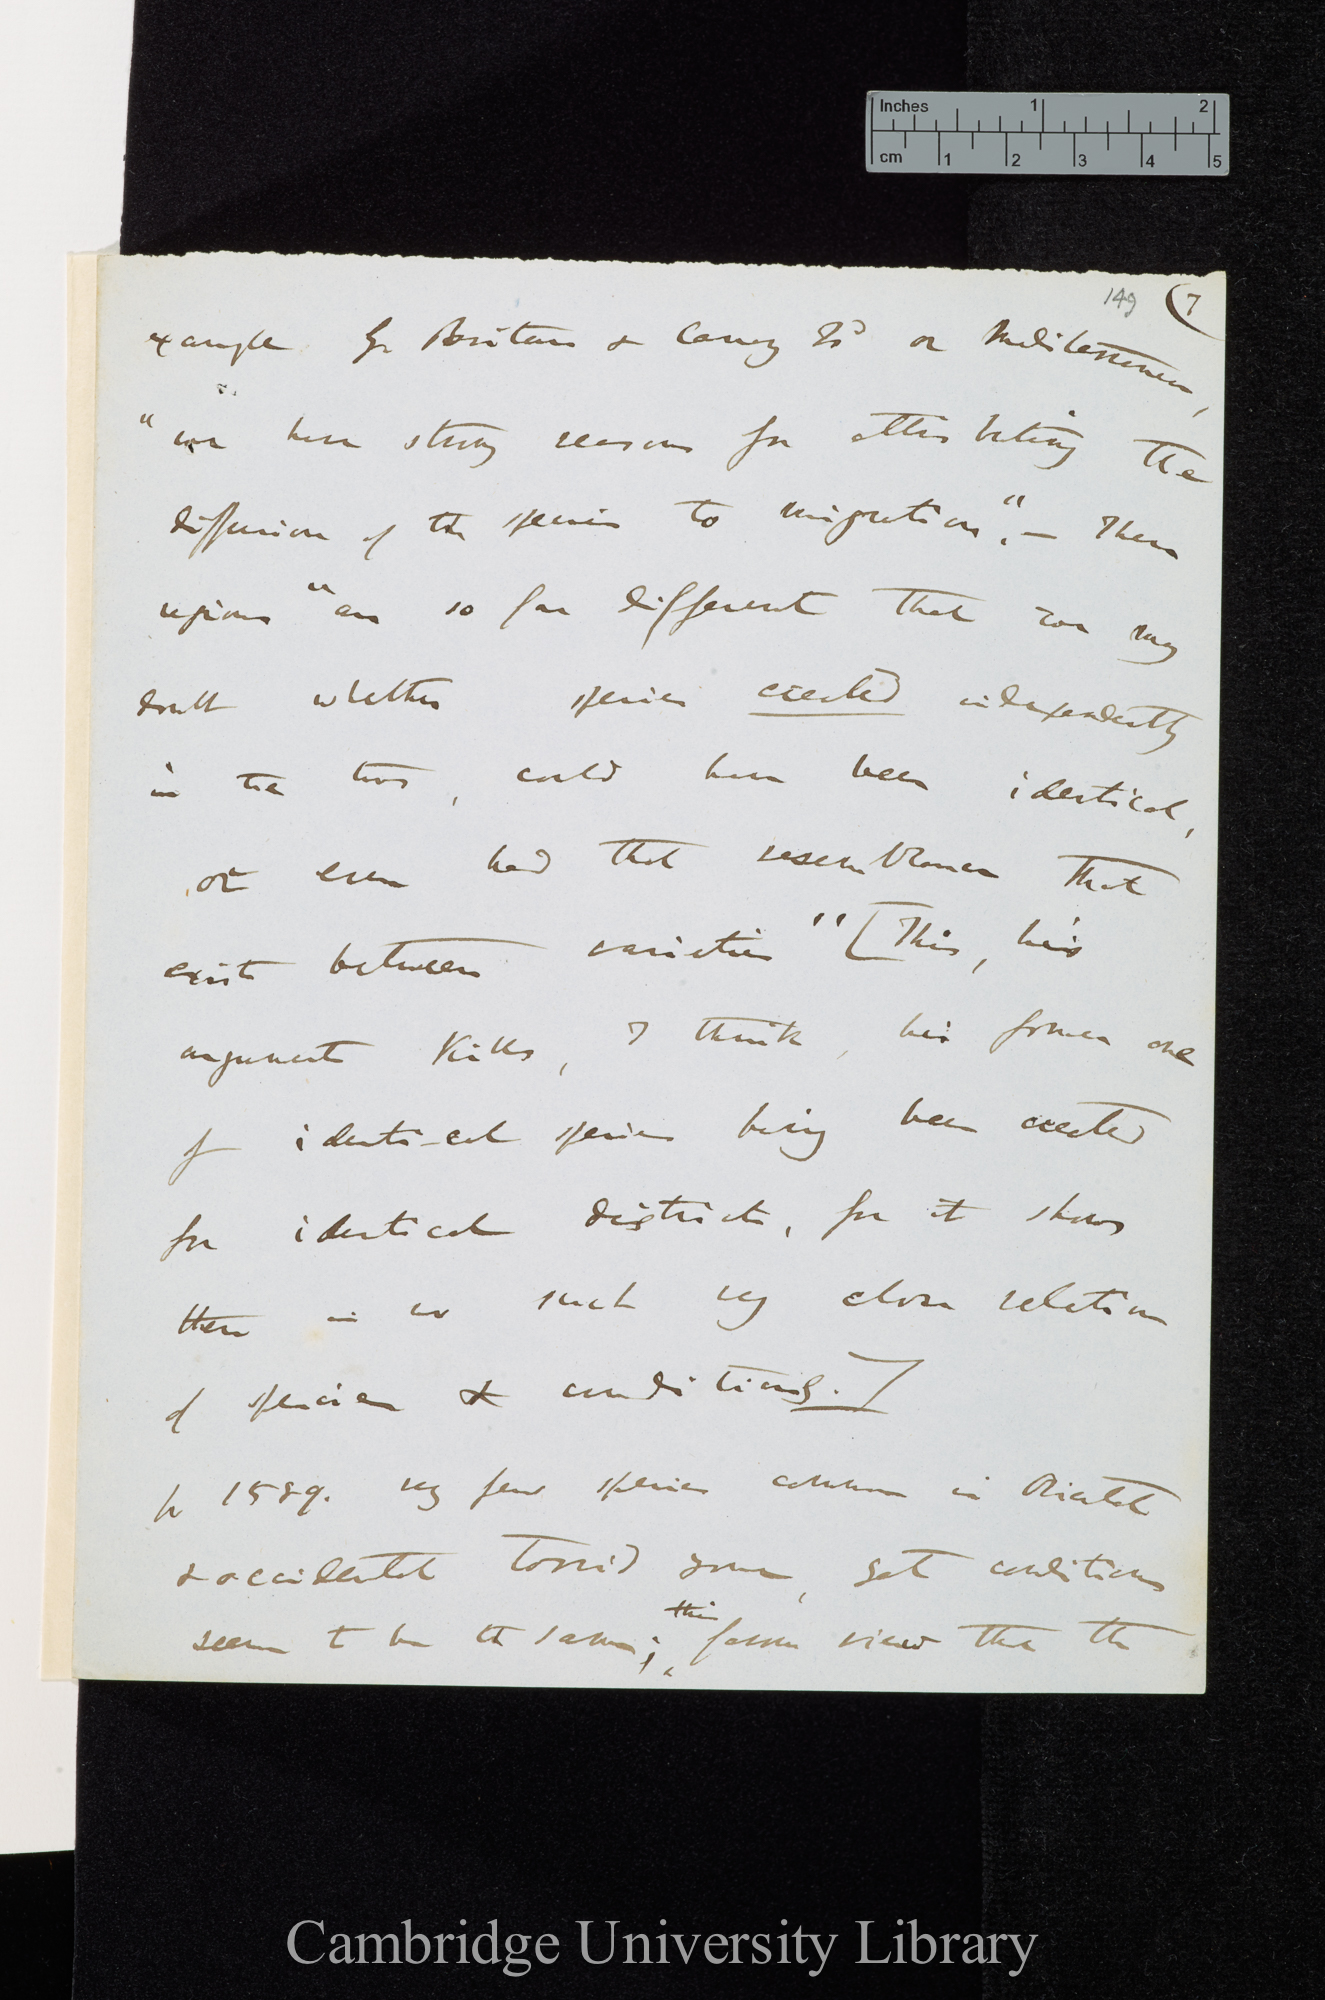 Inches 1 2
cm 1 2 3 4 5
149 (7
example Gr Britain & Canary Is or Mediterranean,
"we have strong reasons for attributing the
diffusion of the species to migration".— These
regions "are so far different that we may
doubt whether species created independently
in the two, could have been identical,
or even had that resemblance that
exist between varieties" [This, his
argument kills, I think, his former one
of identical species being been created
for identical districts, for it shows
there is no such very close relation
of species & conditions.]
p 1589. very few species common in Oriental
& occidental torrid zone, yet conditions
seem to be the same; this favour view that the
Cambridge University Library